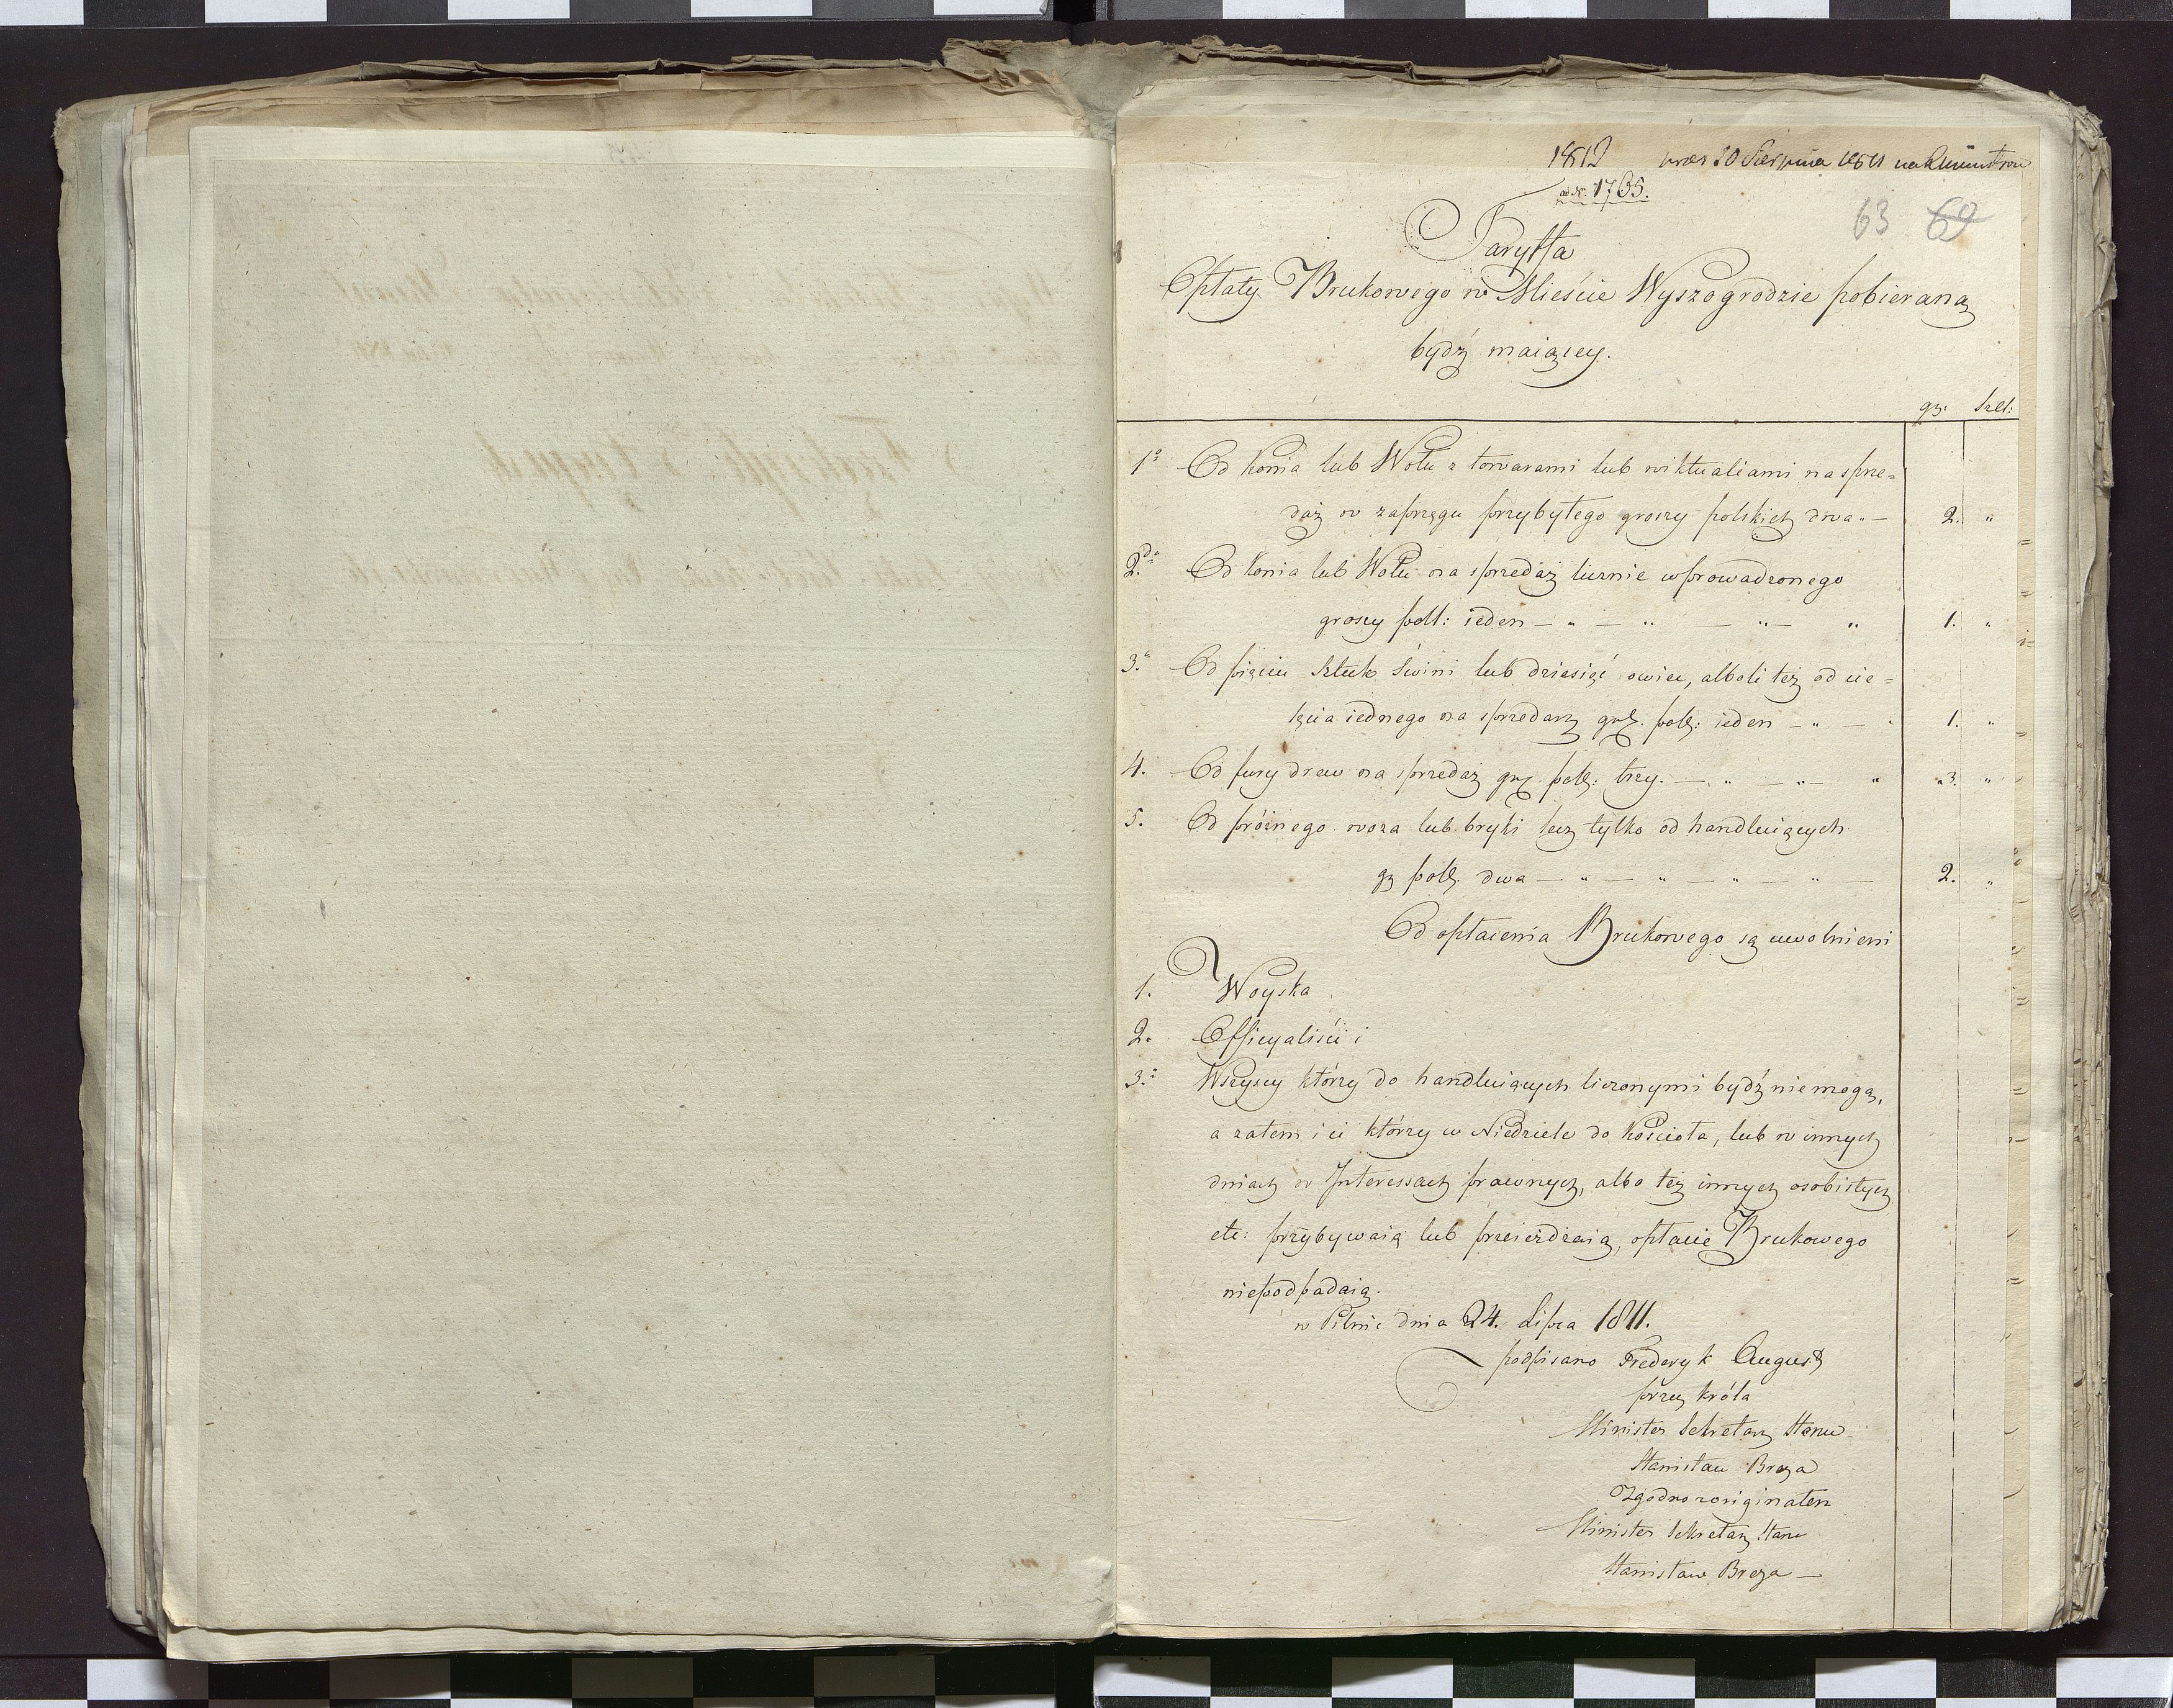 1812 prez 20 Sierpnia 1811
ad Nr. 1765.
63 69
Taryffa
Opłaty Brukowego w Mieście Wyszogrodzie pobieraną
bydź maiącey.
gr: szel:
1º Od Konia lub Wołu z towarami lub wiktualiami na sprze=
daż w zaprzęgu przybyłego groszy polskich dwa " — 2. "
2.do Od Konia lub Wołu na sprzedaż luznie wprowadzonego
groszy poll: ieden — " — " — " — " 1. "
3.o Od pięciu Sztuk świni lub dziesięć owiec, alboli też od cie=
lęcia iednego na sprzedarz gr. pol: ieden — " — " 1. "
4. Od fury drew na sprzedaż gr. pol: trzy. — " — " — " "3. "
5. Od próżnego woza lub bryki lecz tylko od handluiących
gr pol. dwa — " — " — " — " — 2. "
Od opłacenia Brukowego są uwolnieni
1. Woyska
2. Officyaliści i
3.o Wszyscy którzy do handluiących liczonymi bydź niemogą,
a zatem i ci którzy w Niedziele do Kościoła, lub w innych
dniach w Interessach prawnych, albo też innych osobistych
etc: przybywaią lub przeieżdzaią, opłacie Brukowego
niepodpadaią.
w Pilnic dnia 24. Lipca 1811.
podpisano Frederyk August
przez króla
Minister Sekretarz Stanu
Stanisław Breza
Zgodno z originałem
Minister Sekretarz Stanu
Stanisław Breza —